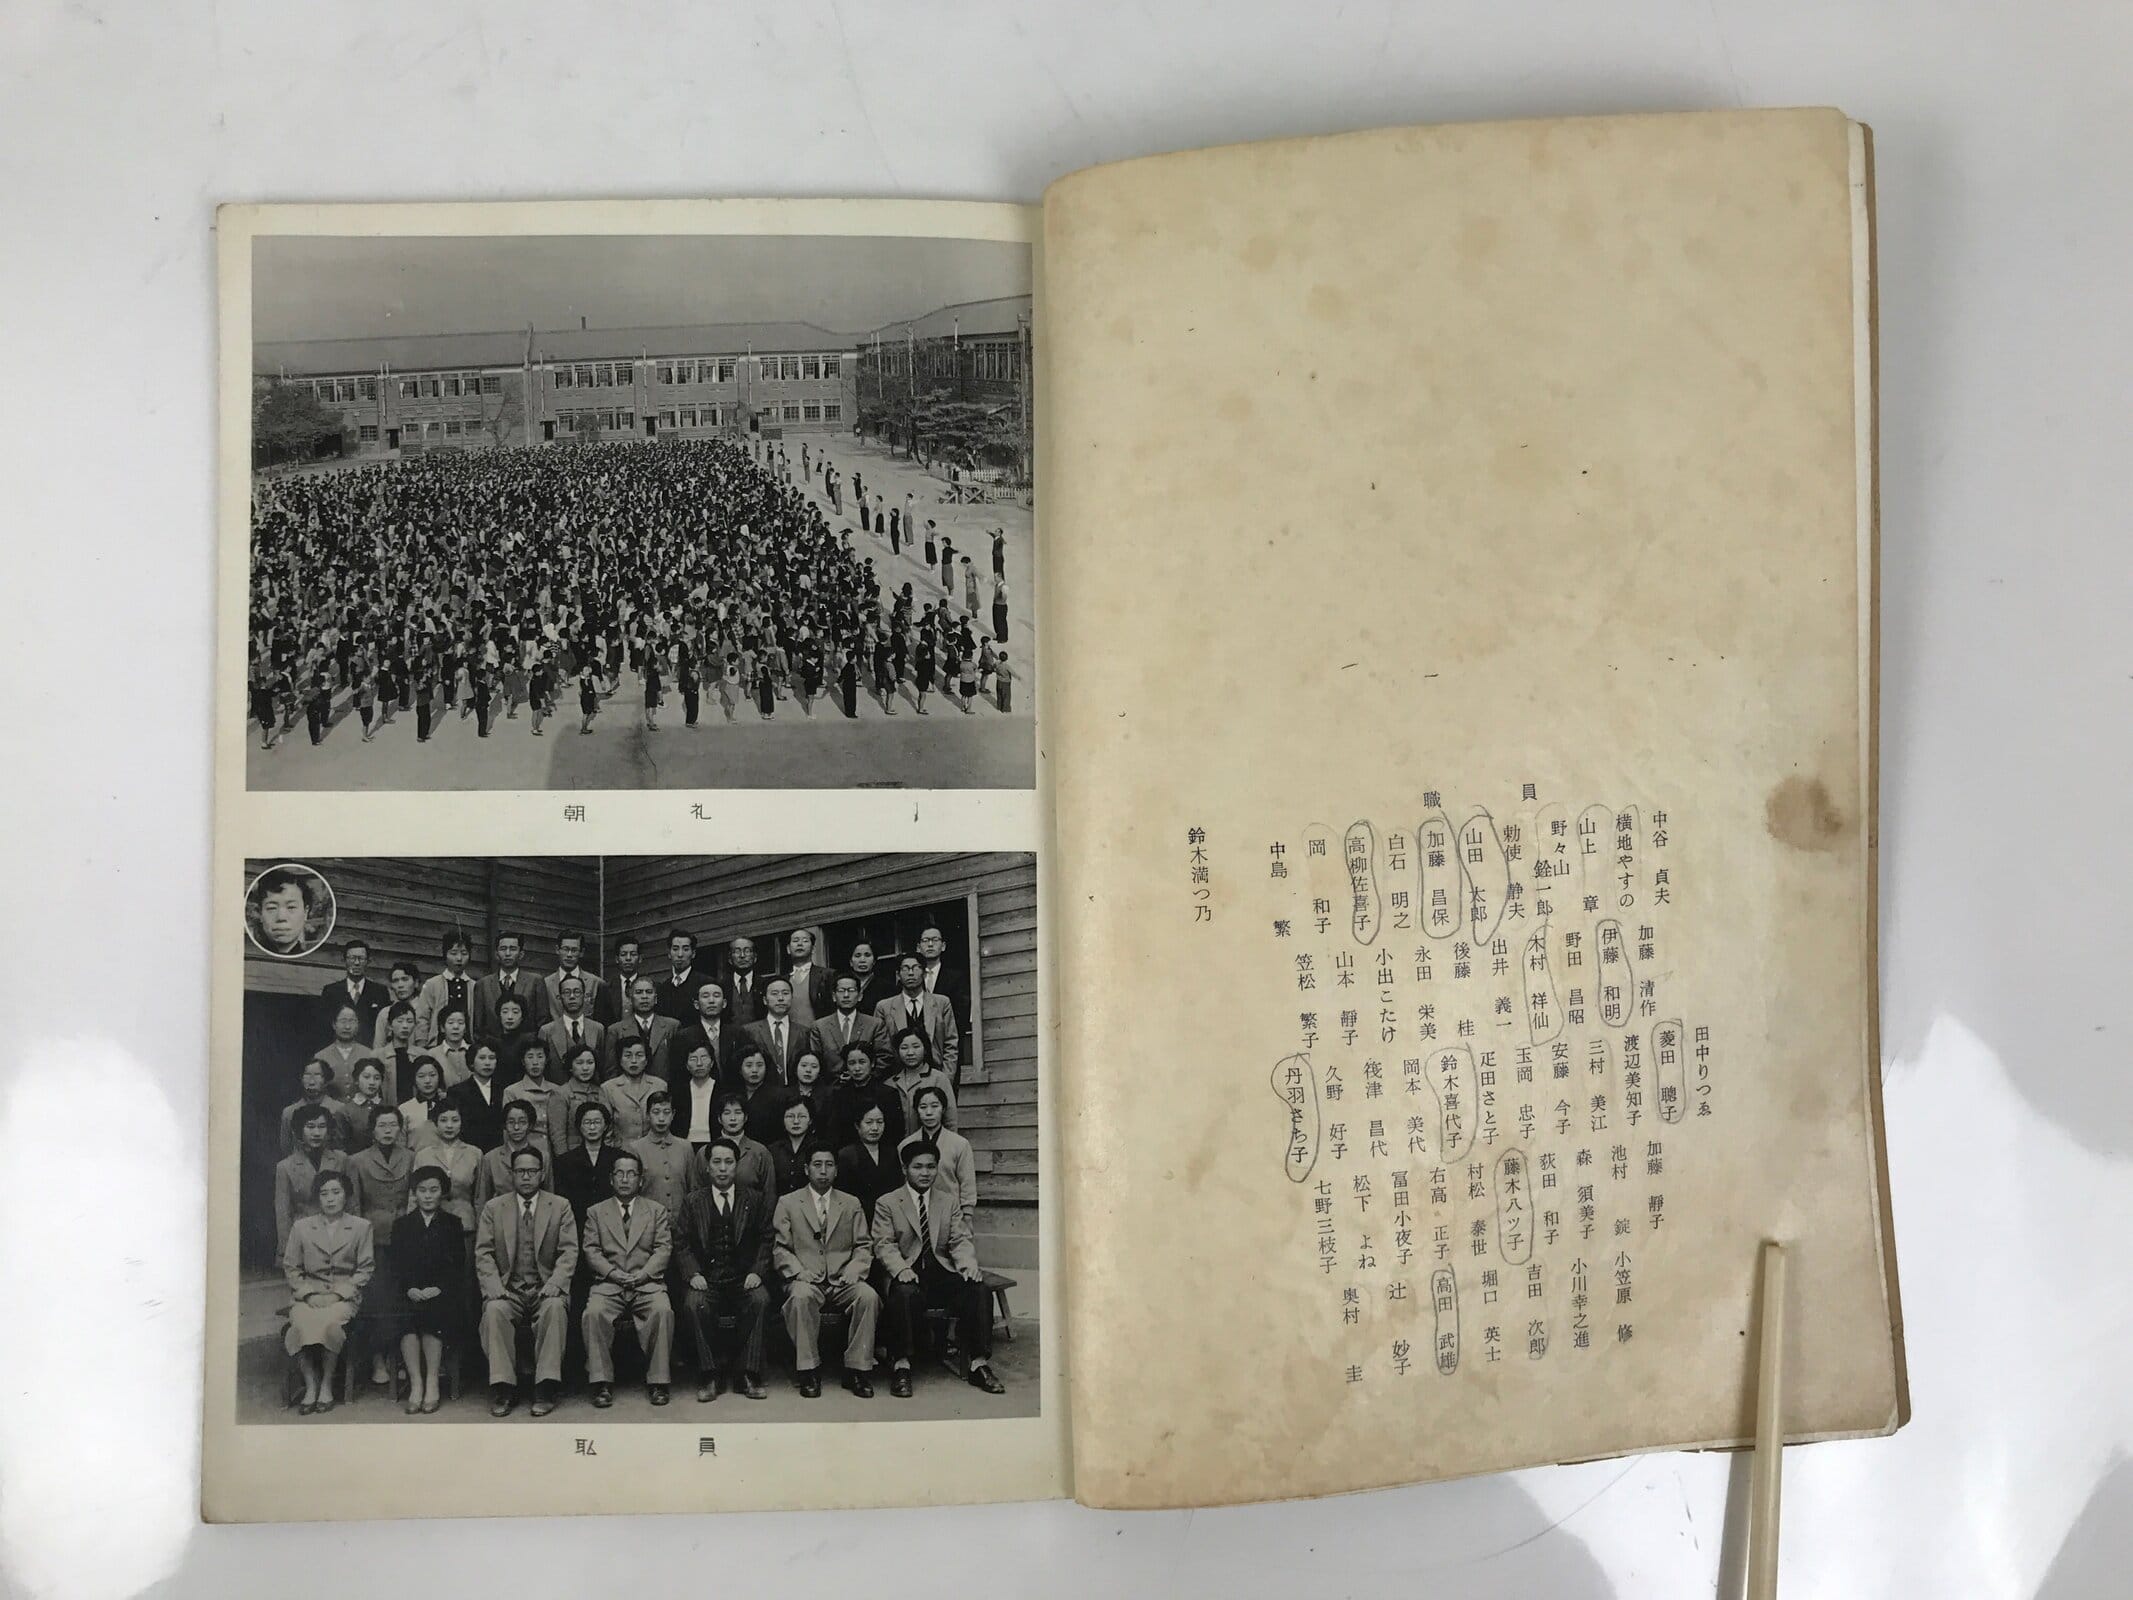 朝礼
耺員
職員
中谷 貞夫
横地やすの
山上 章
野々山 銓一郎
勅使 静夫
山田 太郎
加藤 昌保
白石 明之
高柳佐喜子
岡 和子
中島 繁
鈴木満つ乃
加藤 清作
伊藤 和明
野田 昌昭
木村 祥仙
出井 義一
後藤 桂
永田 栄美
小出こたけ
山本 靜子
笠松 繁子
田中りつゑ
菱田 聰子
渡辺美知子
三村 美江
安藤 今子
玉岡 忠子
疋田さと子
鈴木喜代子
岡本 美代
筏津 昌代
久野 好子
丹羽さち子
加藤 靜子
池村 錠
森 須美子
荻田 和子
藤木八ツ子
村松 泰世
右高 正子
冨田小夜子
松下 よね
七野三枝子
小笠原 修
小川幸之進
吉田 次郎
堀口 英士
高田 武雄
辻 妙子
奥村 圭